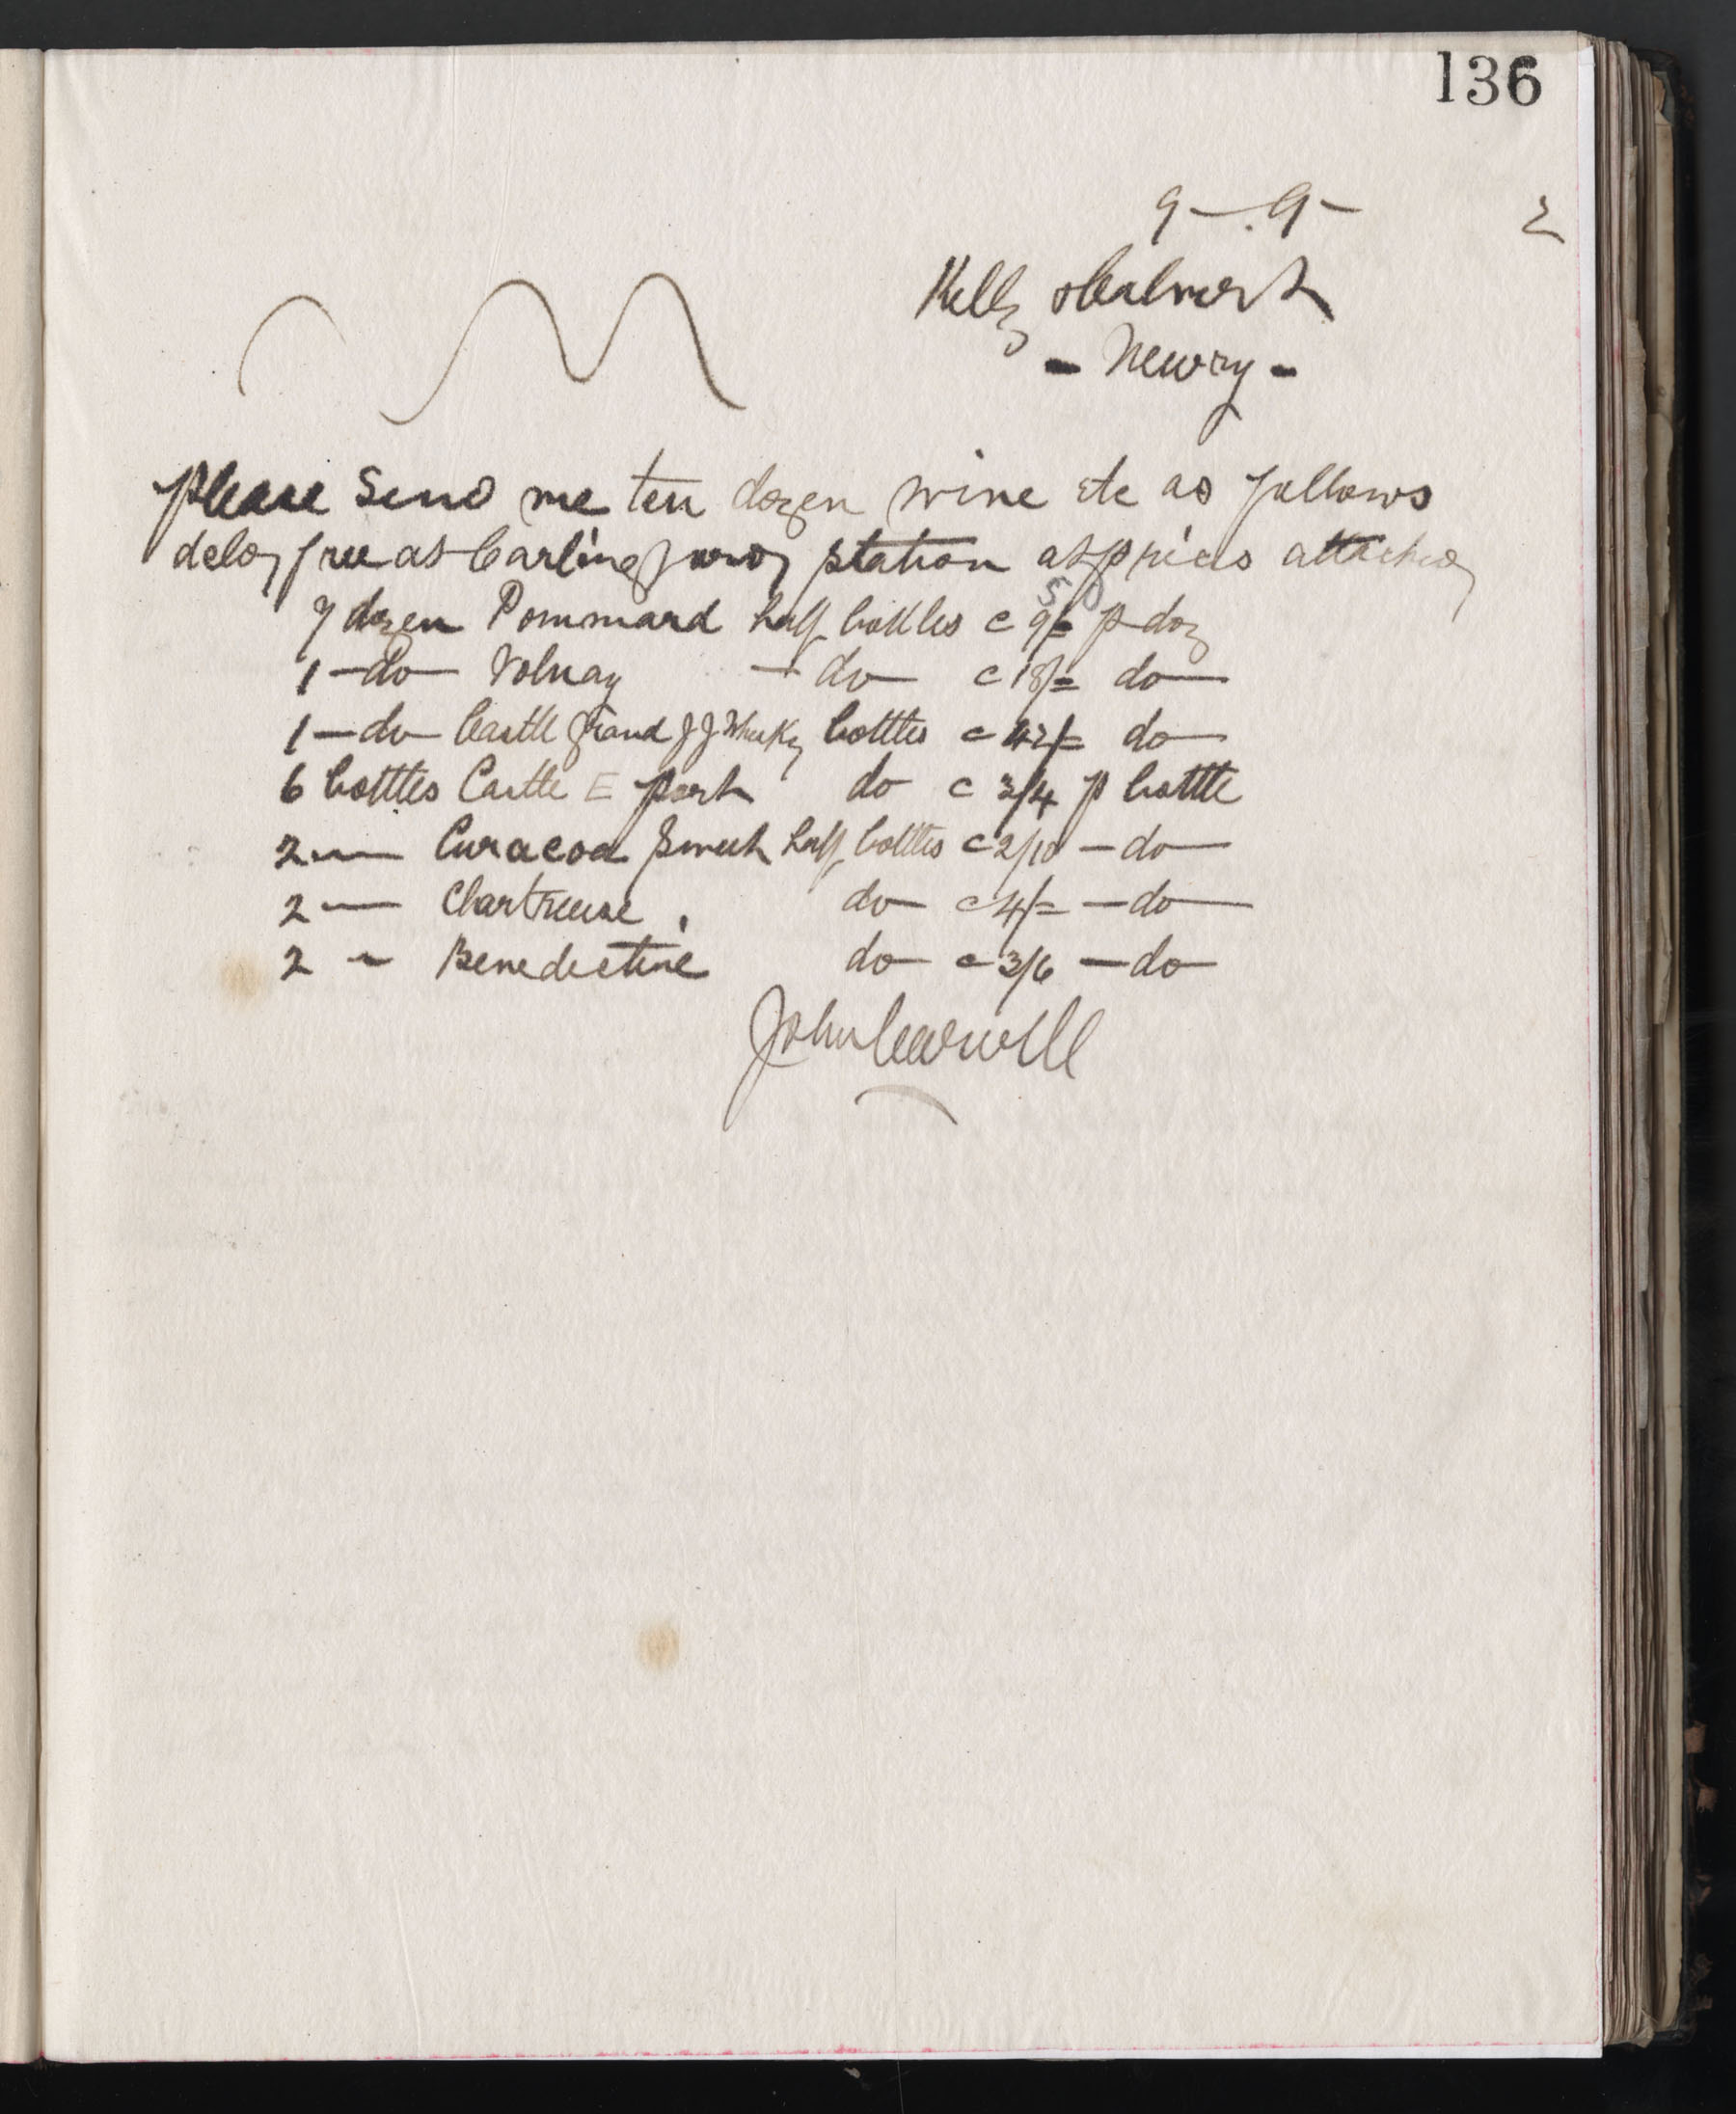 136
9 - 9 - 2
Kelly & Calvert
- Newry -
Please send me ten dozen wine etc as follows
deld free at Carlingford station at prices attached
7 dozen Pommard half bottles c 9/= p doz
1 - do - Volnay - do - c 18/= do -
1 - do - Castle Grand J J Whisky bottles c 42/= do -
6 bottles Castle E port do c 3/4 p bottle
2 — Curacoa Sweet half bottles c 2/10 - do -
2 — Chartreuse do - c 4/= - do -
2 - Benedictine do - c 3/6 - do -
John